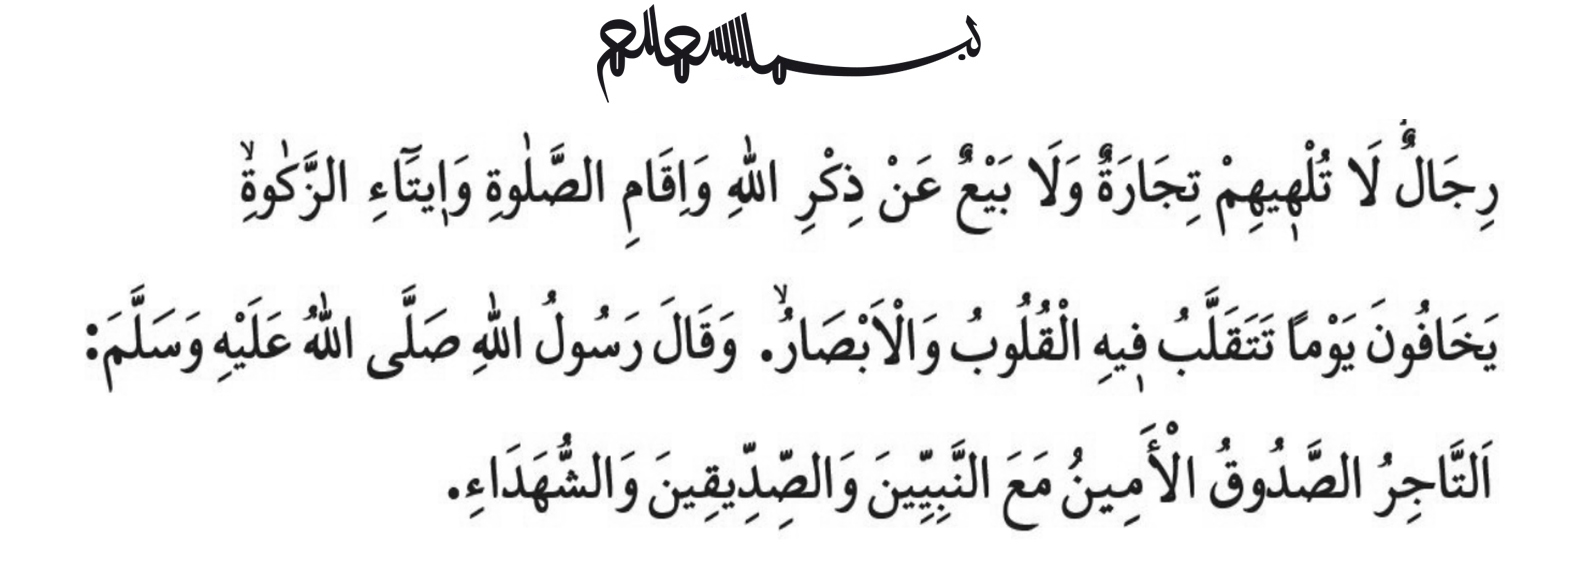 بسم الله الرحمن الرحيم
رِجَالٌ لَا تُلْهٖيهِمْ تِجَارَةٌ وَلَا بَيْعٌ عَنْ ذِكْرِ اللّٰهِ وَاِقَامِ الصَّلٰوةِ وَاٖيتَٓاءِ الزَّكٰوةِۙ
يَخَافُونَ يَوْماً تَتَقَلَّبُ فٖيهِ الْقُلُوبُ وَالْاَبْصَارُۙ. وَقَالَ رَسُولُ اللّٰهِ صَلَّى اللّٰهُ عَلَيْهِ وَسَلَّمَ:
اَلتَّاجِرُ الصَّدُوقُ الْأَمِينُ مَعَ النَّبِيِّينَ وَالصِّدِّيقِينَ وَالشُّهَدَاءِ.